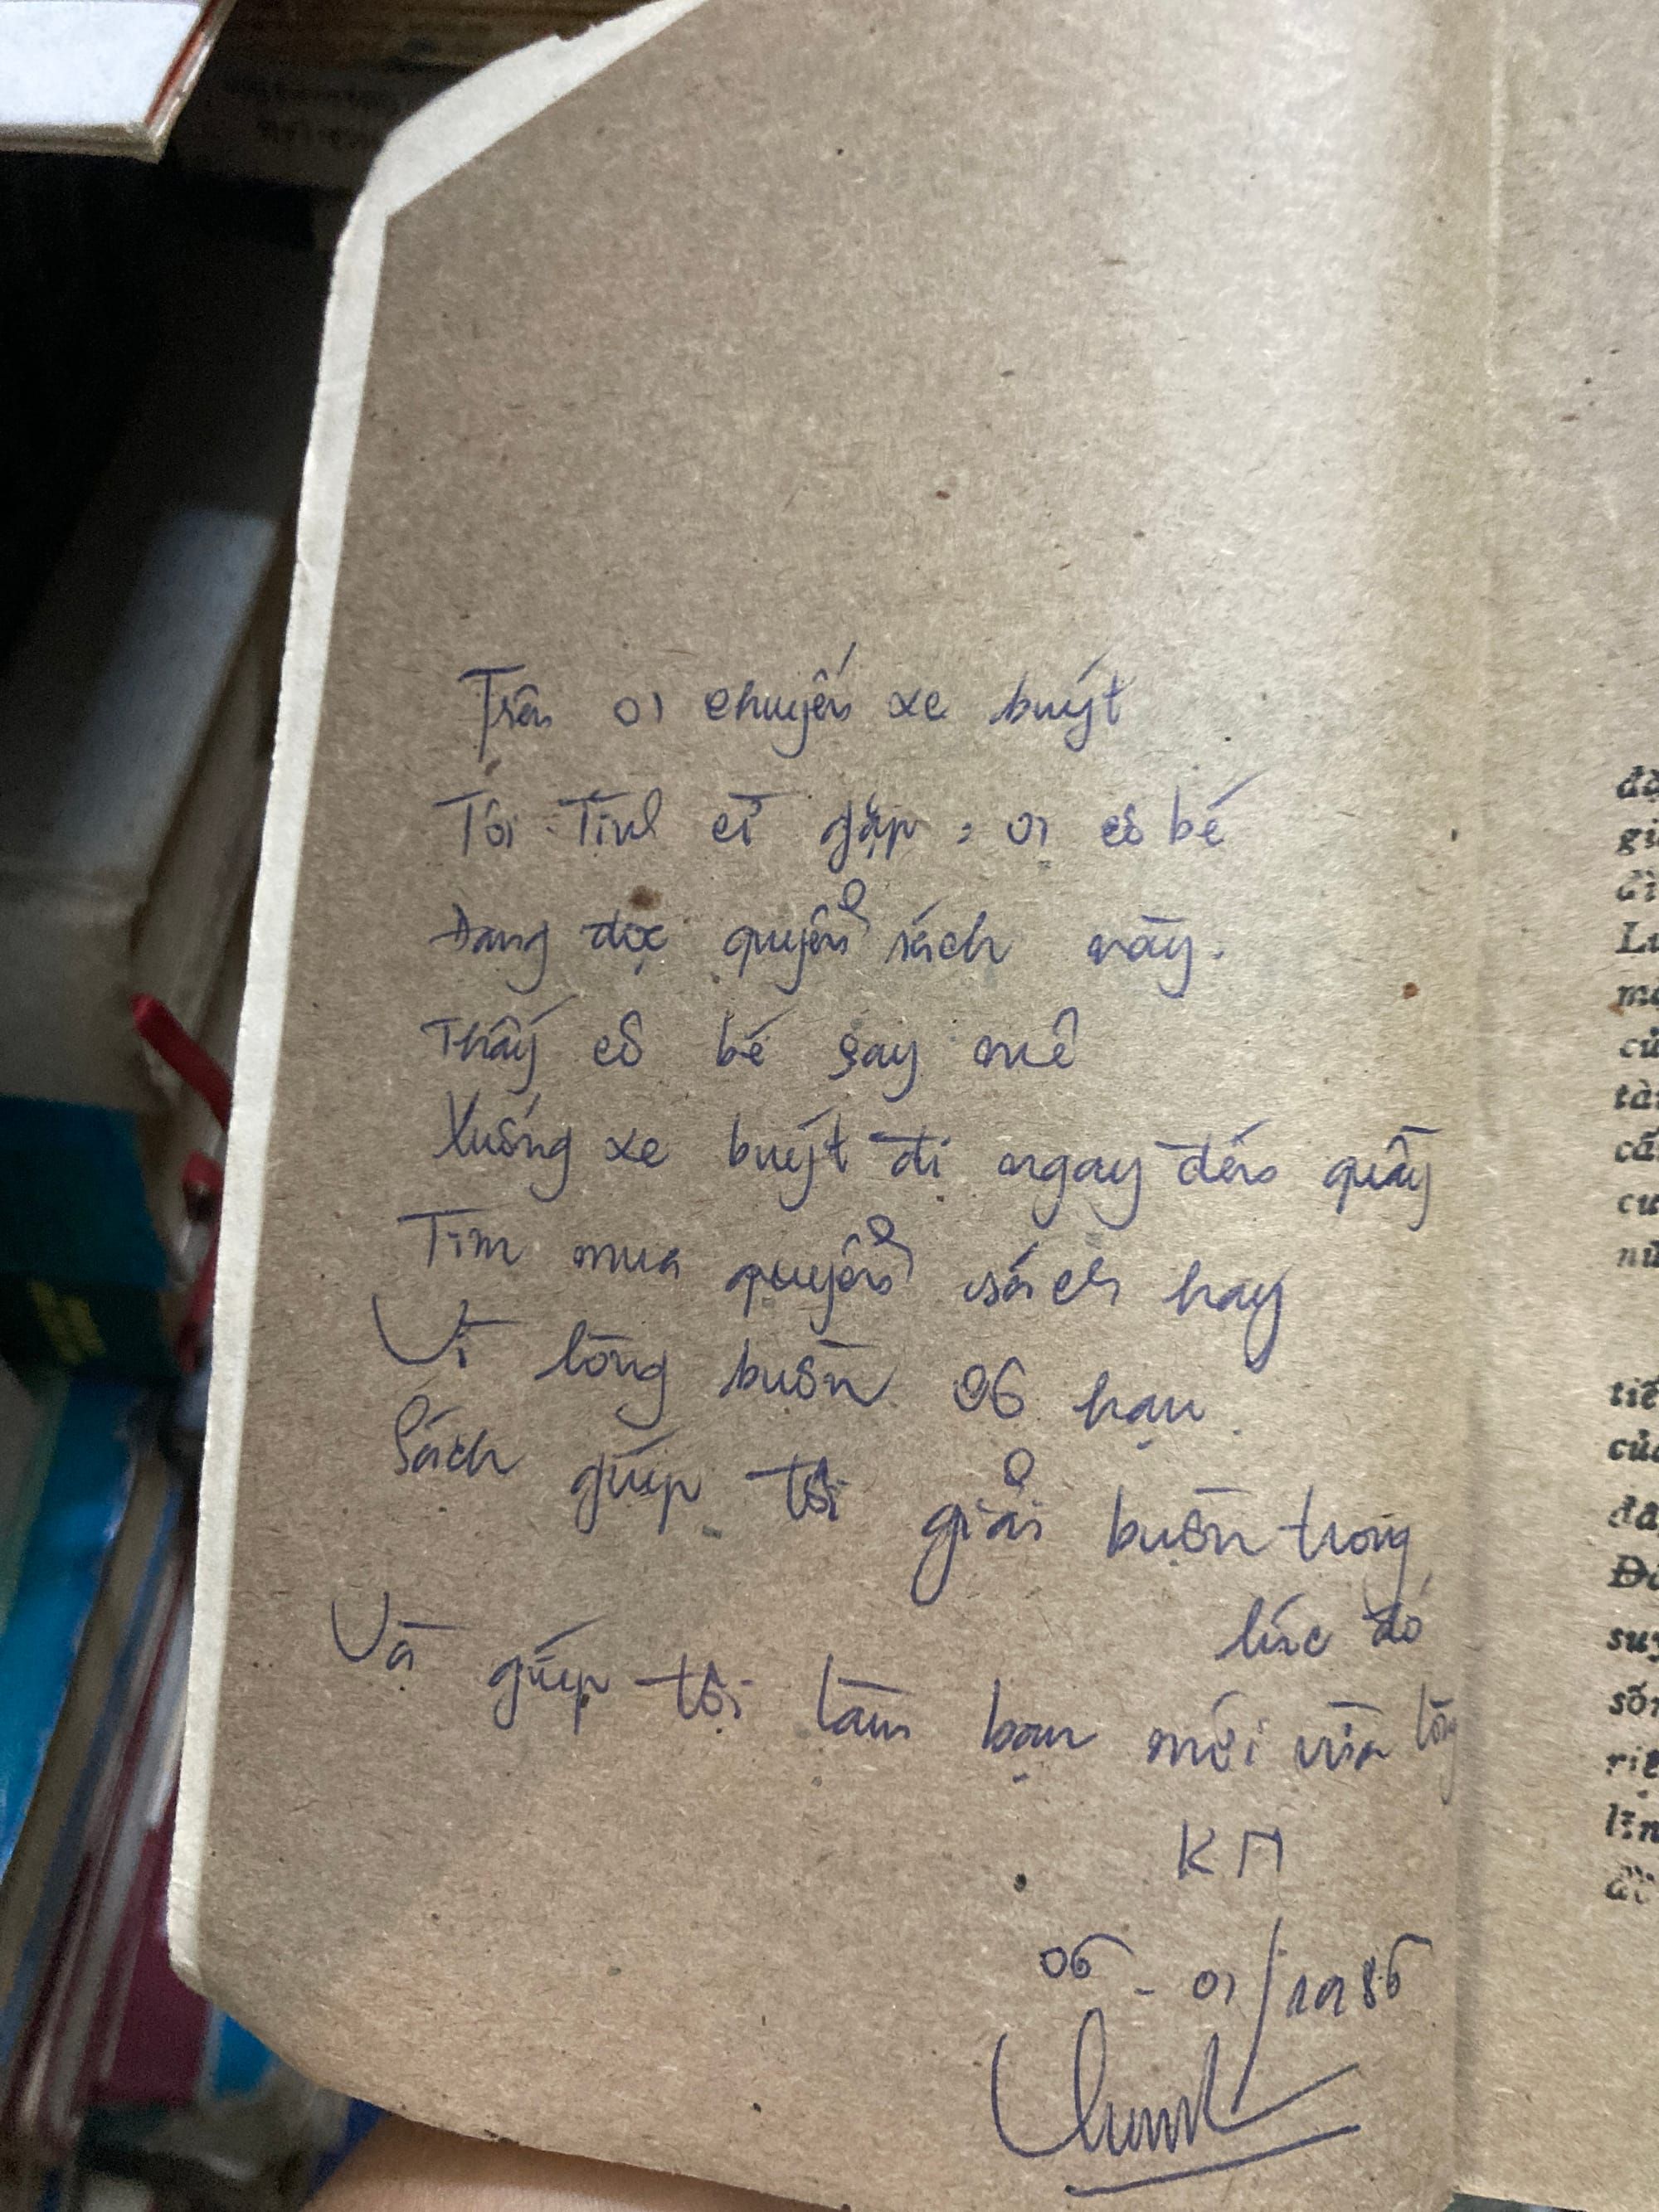 Trên 01 chuyến xe buýt
Tôi Tình cờ gặp 01 cô bé
Đang đọc quyển sách này.
Thấy cô bé say mê
Xuống xe buýt đi ngay đến quầy
Tìm mua quyển sách hay
Vì lòng buồn vô hạn
Sách giúp tôi giải buồn trong
lúc đó
Và giúp tôi làm bạn mới vừa lòng
KM
06-01/1986
đọ
gi
đì
Lu
mộ
củ
tà
cá
cu
nữ
tiế
của
đã
Đ
suy
sốn
riê
lĩn